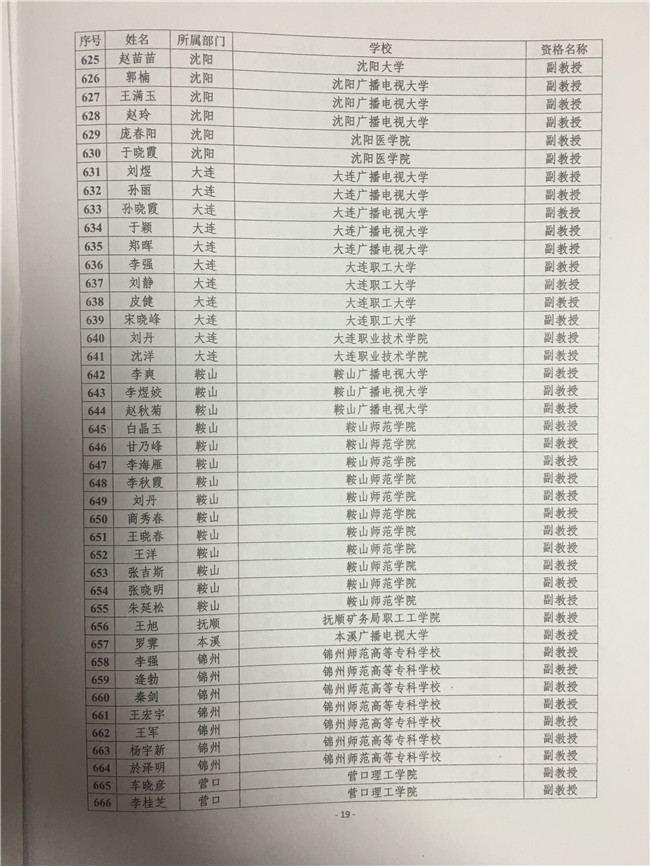 序号 姓名 所属部门 学校 资格名称
625 赵苗苗 沈阳 沈阳大学 副教授
626 郭楠 沈阳 沈阳广播电视大学 副教授
627 王满玉 沈阳 沈阳广播电视大学 副教授
628 赵玲 沈阳 沈阳广播电视大学 副教授
629 庞春阳 沈阳 沈阳医学院 副教授
630 于晓霞 沈阳 沈阳医学院 副教授
631 刘煜 大连 大连广播电视大学 副教授
632 孙丽 大连 大连广播电视大学 副教授
633 孙晓霞 大连 大连广播电视大学 副教授
634 于颖 大连 大连广播电视大学 副教授
635 郑晖 大连 大连广播电视大学 副教授
636 李强 大连 大连职工大学 副教授
637 刘静 大连 大连职工大学 副教授
638 皮健 大连 大连职工大学 副教授
639 宋晓峰 大连 大连职工大学 副教授
640 刘丹 大连 大连职业技术学院 副教授
641 沈洋 大连 大连职业技术学院 副教授
642 李爽 鞍山 鞍山广播电视大学 副教授
643 李煜姣 鞍山 鞍山广播电视大学 副教授
644 赵秋菊 鞍山 鞍山广播电视大学 副教授
645 白晶玉 鞍山 鞍山师范学院 副教授
646 甘乃峰 鞍山 鞍山师范学院 副教授
647 李海雁 鞍山 鞍山师范学院 副教授
648 李秋霞 鞍山 鞍山师范学院 副教授
649 刘丹 鞍山 鞍山师范学院 副教授
650 商秀春 鞍山 鞍山师范学院 副教授
651 王晓春 鞍山 鞍山师范学院 副教授
652 王洋 鞍山 鞍山师范学院 副教授
653 张吉斯 鞍山 鞍山师范学院 副教授
654 张晓明 鞍山 鞍山师范学院 副教授
655 朱延松 鞍山 鞍山师范学院 副教授
656 王旭 抚顺 抚顺矿务局职工工学院 副教授
657 罗霁 本溪 本溪广播电视大学 副教授
658 李强 锦州 锦州师范高等专科学校 副教授
659 逄勃 锦州 锦州师范高等专科学校 副教授
660 秦剑 锦州 锦州师范高等专科学校 副教授
661 王宏宇 锦州 锦州师范高等专科学校 副教授
662 王军 锦州 锦州师范高等专科学校 副教授
663 杨宇新 锦州 锦州师范高等专科学校 副教授
664 於泽明 锦州 锦州师范高等专科学校 副教授
665 车晓彦 营口 营口理工学院 副教授
666 李桂芝 营口 营口理工学院 副教授
- 19 -